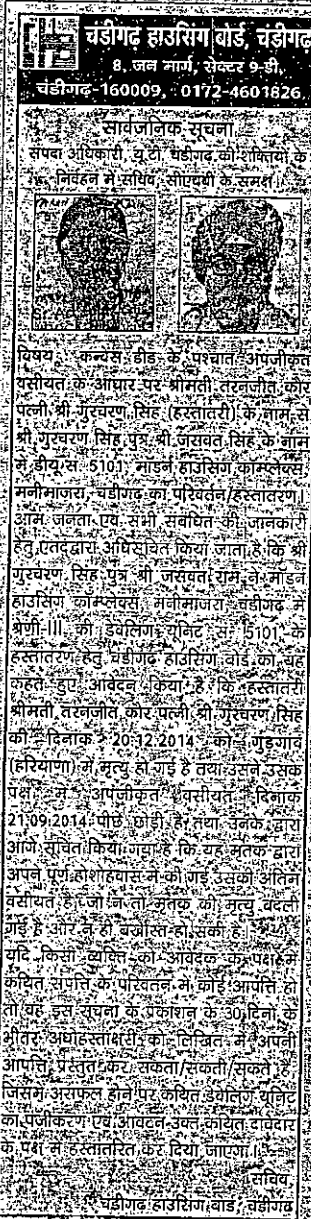 चंडीगढ़ हाउसिंग बोर्ड, चंडीगढ़
8, जन मार्ग, सेक्टर 9-डी,
चंडीगढ़-160009, 0172-4601826
सार्वजनिक सूचना
संपदा अधिकारी, यू.टी. चंडीगढ़ की शक्तियों के
निर्वहन में सचिव, सीएचबी के समक्ष।
विषय: कन्वेंस डीड के पश्चात अपंजीकृत
वसीयत के आधार पर श्रीमती तरनजीत कौर
पत्नी श्री गुरचरण सिंह (हस्तांतरी) के नाम से
श्री गुरचरण सिंह पुत्र श्री जसवंत सिंह के नाम
में डीयू सं. 5101, मॉडर्न हाउसिंग काम्पलेक्स,
मनीमाजरा, चंडीगढ़ का परिवर्तन/हस्तांतरण।
आम जनता एवं सभी संबंधित की जानकारी
हेतु एतद्द्वारा अधिसूचित किया जाता है कि श्री
गुरचरण सिंह पुत्र श्री जसवंत राम ने मॉडर्न
हाउसिंग कॉम्पलेक्स, मनीमाजरा, चंडीगढ़ में
श्रेणी-III की डवेलिंग यूनिट सं. 5101 के
हस्तांतरण हेतु चंडीगढ़ हाउसिंग बोर्ड को यह
कहते हुए आवेदन किया है कि हस्तांतरी
श्रीमती तरनजीत कौर पत्नी श्री गुरचरण सिंह
की दिनांक 20.12.2014 को गुड़गांव
(हरियाणा) में मृत्यु हो गई है तथा उसने उसके
पक्ष में अपंजीकृत वसीयत दिनांक
21.09.2014 पीछे छोड़ी है तथा उनके द्वारा
आगे सूचित किया गया है कि यह मृतक द्वारा
अपने पूर्ण होशोहवास में की गई उसकी अंतिम
वसीयत है जो न तो मृतक की मृत्यु बदली
गई है और न ही बर्खास्त हो सकी है।
यदि किसी व्यक्ति को आवेदक के पक्ष में
कथित संपत्ति के परिवर्तन में कोई आपत्ति हो
तो वह इस सूचना के प्रकाशन के 30 दिनों के
भीतर अधोहस्ताक्षरी को लिखित में अपनी
आपत्ति प्रस्तुत कर सकता/सकती/सकते है,
जिसमें असफल होने पर कथित डवेलिंग यूनिट
का पंजीकरण एवं आवंटन उक्त कथित दावेदार
के पक्ष में हस्तांतरित कर दिया जाएगा।
सचिव
चंडीगढ़ हाउसिंग बोर्ड, चंडीगढ़